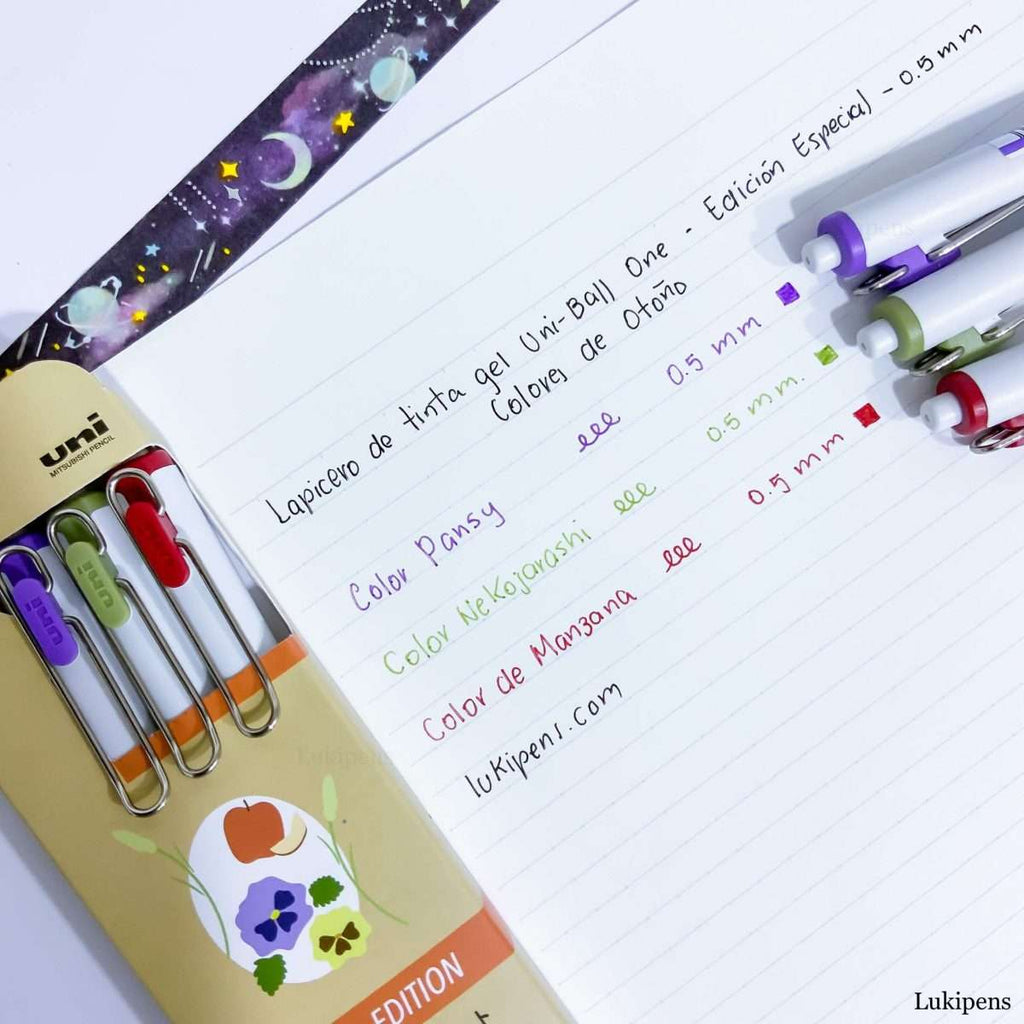 Lapicero de tinta gel Uni-Ball One - Edición Especial - 0.5 mm
Colores de Otoño
Color Pansy eee 0.5 mm
Color Nekojarashi eee 0.5 mm.
Color de Manzana eee 0.5 mm
lukipens.com
uni
MITSUBISHI PENCIL
uni
uni
EDITION
Lukipens
Lukipens